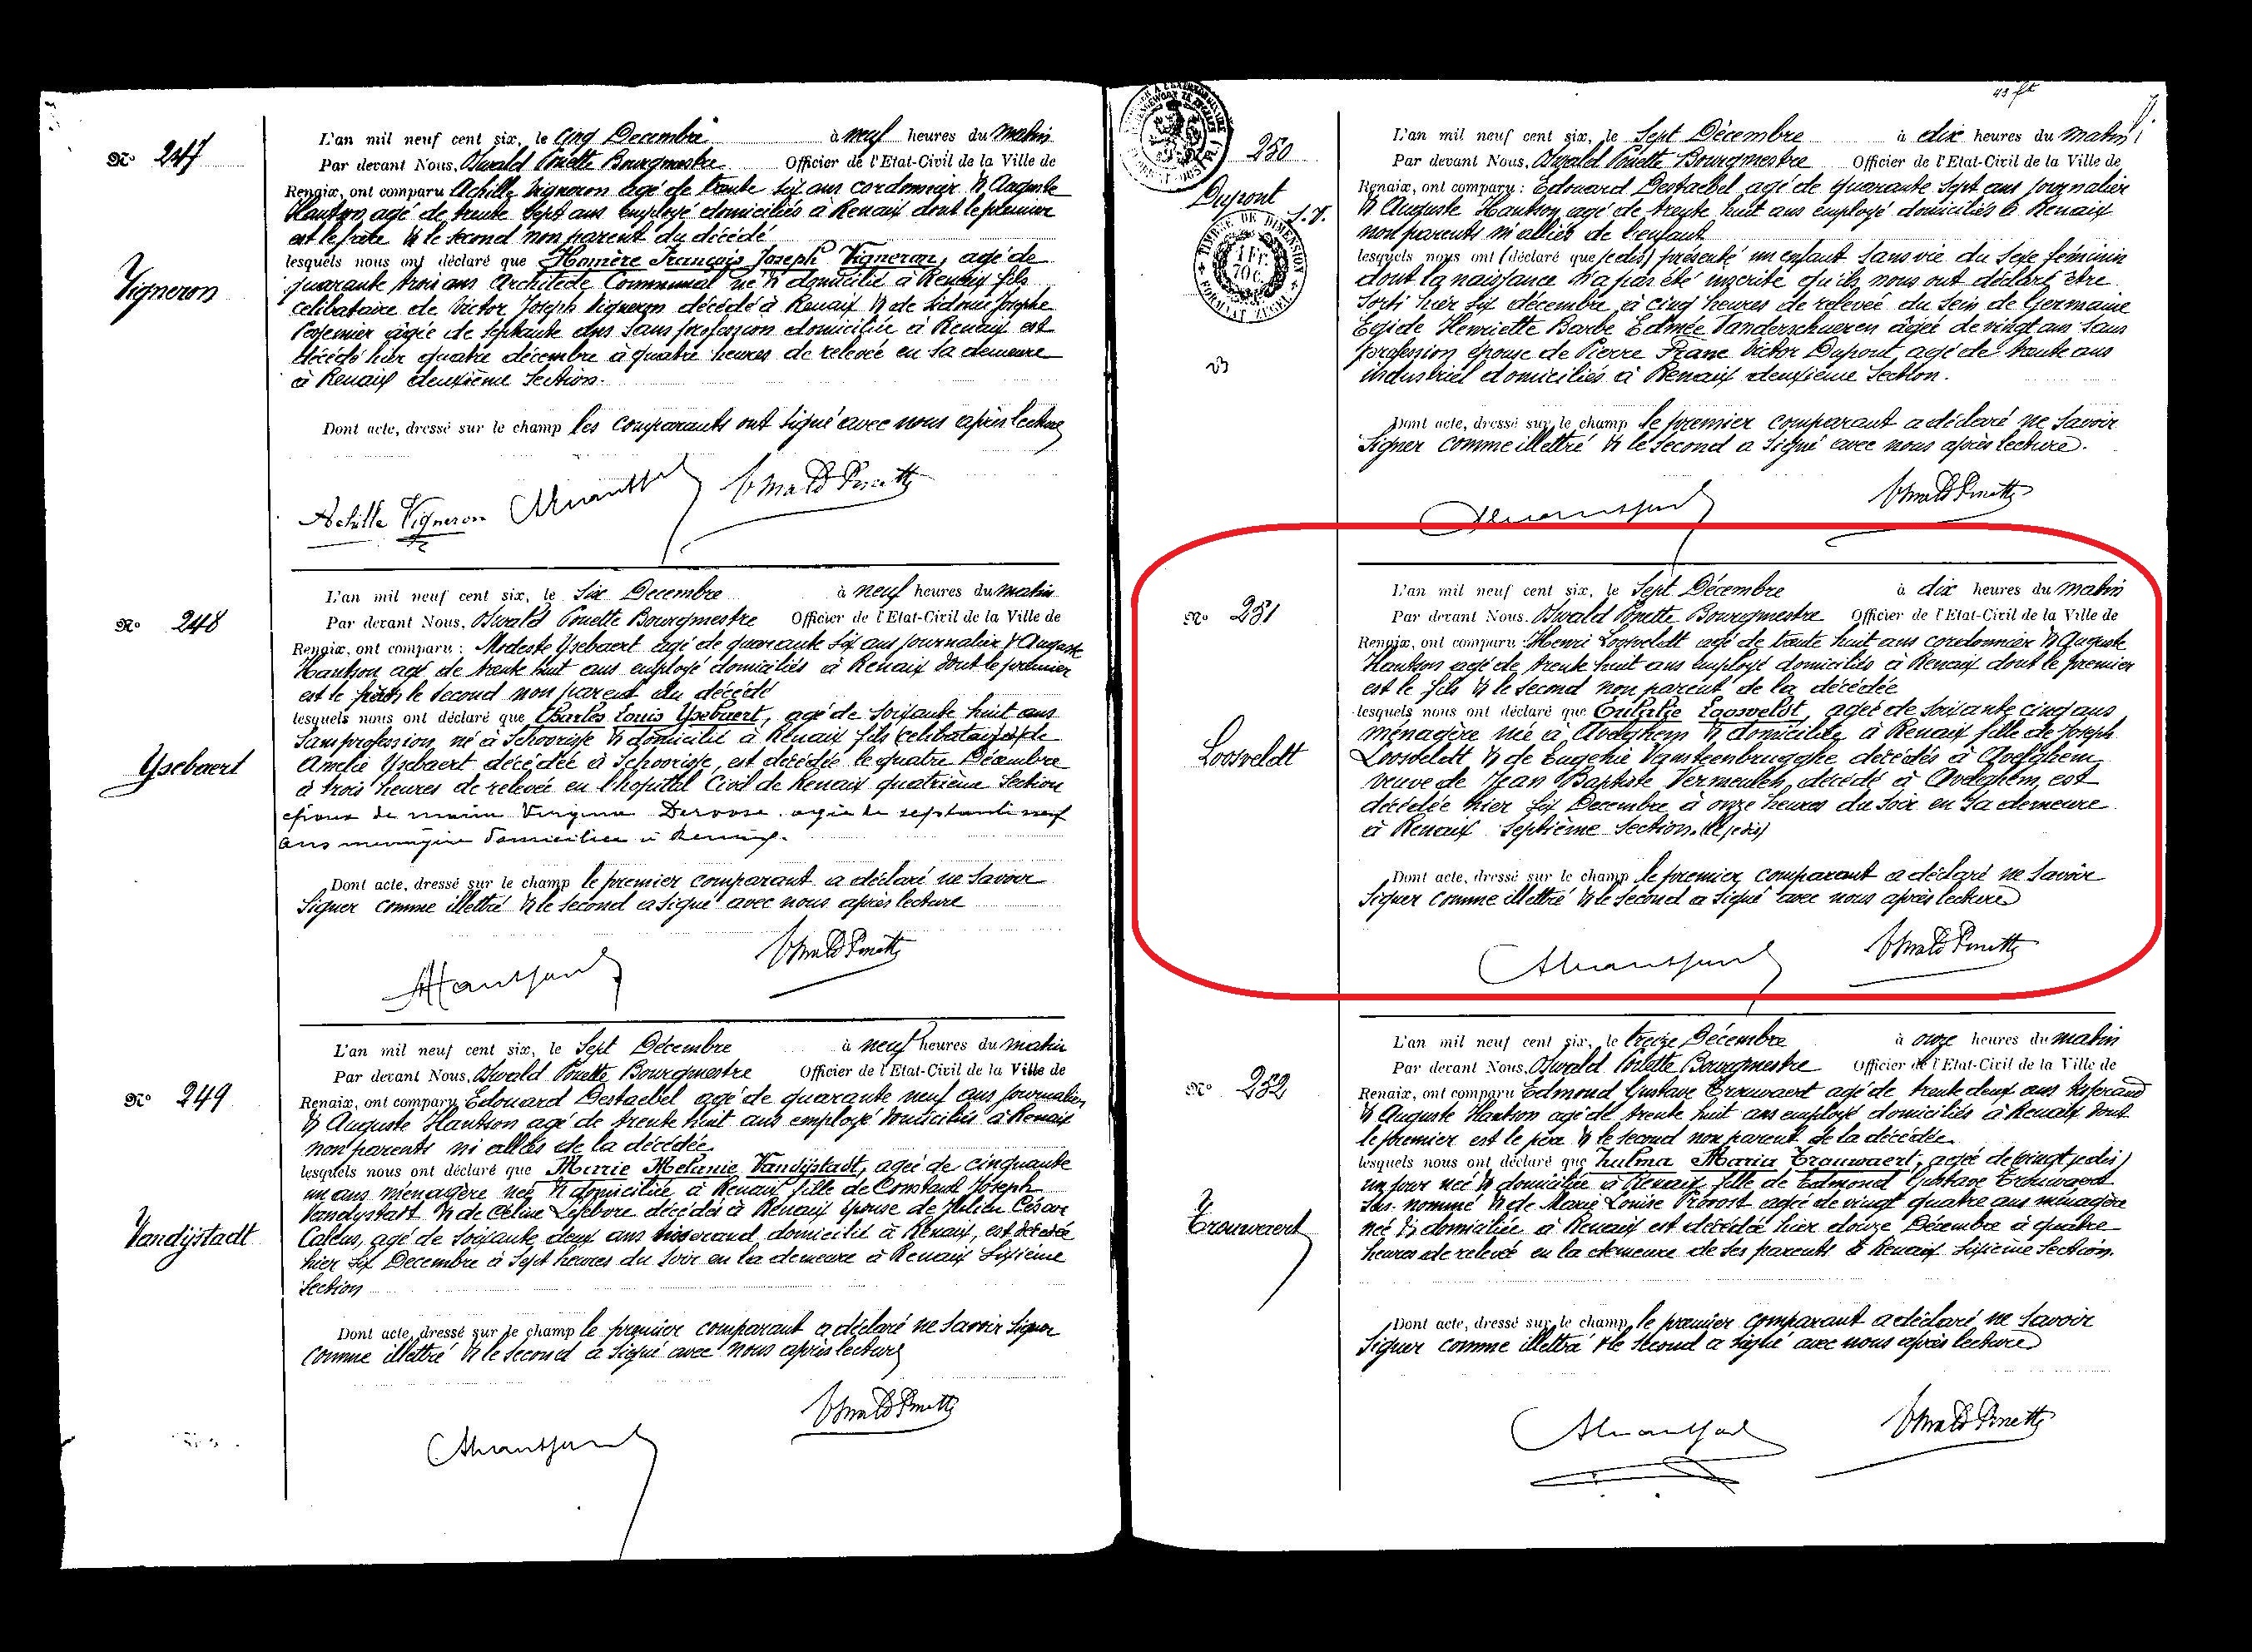 Nº 247
Vigneron
L'an mil neuf cent six, le cinq Decembre à neuf heures du matin
Par devant Nous, Oswald Ponette Bourgmestre Officier de l'Etat-Civil de la Ville de
Renaix, ont comparu Achille Vigneron agé de trente six ans cordonnier & Auguste
Hantson agé de trente sept ans employé domiciliés à Renaix dont le premier
est le frère & le second non parent du décédé
lesquels nous ont déclaré que Homère François Joseph Vigneron, agé de
quarante trois ans Architecte Communal né & domicilié à Renaix fils
celibataire de Victor Joseph Vigneron décédé à Renaix & de Sidonie Josephe
agée de septante ans sans profession domiciliée à Renaix est
décédé hier quatre décembre à quatre heures de relevée en sa demeure
à Renaix deuxième Section.
Dont acte, dressé sur le champ les comparants ont signé avec nous après lecture
Achille Vigneron
Nº 248
Ysebaert
L'an mil neuf cent six, le Six Decembre à neuf heures du matin
Par devant Nous, Oswald Ponette Bourgmestre Officier de l'Etat-Civil de la Ville de
Renaix, ont comparu : Modeste Ysebaert agé de quarante six ans journalier & Auguste
Hantson agé de trente huit ans employé domiciliés à Renaix dont le premier
est le & le second non parent du décédé
lesquels nous ont déclaré que Charles Louis Ysebaert, agé de soixante huit ans
sans profession né à Schoorisse & domicilié à Renaix fils de
Amelie Ysebaert décédée à Schoorisse, est décédé le quatre Décembre
à trois heures de relevée en l'hopital Civil de Renaix quatrième Section
époux de Virginie agée de septante neuf
ans menagère domiciliée à Renaix.
Dont acte, dressé sur le champ le premier comparant a déclaré ne savoir
signer comme illettré & le second a signé avec nous après lecture
Nº 249
Vandijstadt
L'an mil neuf cent six, le Sept Décembre à neuf heures du matin
Par devant Nous, Oswald Ponette Bourgmestre Officier de l'Etat-Civil de la Ville de
Renaix, ont comparu Edouard Destaebel agé de quarante neuf ans journalier
& Auguste Hantson agé de trente huit ans employé domiciliés à Renaix
non parents ni alliés de la décédée
lesquels nous ont déclaré que Marie Melanie Vandijstadt, agée de cinquante
un ans ménagère née & domiciliée à Renaix fille de Constant Joseph
Vandijstadt & de Céline Lefebvre décédés à Renaix épouse de César
agé de soixante deux ans tisserand domicilié à Renaix, est décédée
hier six Decembre à sept heures du soir en la demeure à Renaix sixième
Section
Dont acte, dressé sur le champ le premier comparant a déclaré ne savoir signer
comme illettré & le second a signé avec nous après lecture
250
Dupont
S.V.
TIMBRE DE DIMENSION
1 Fr. 70 c.
FORMAAT ZEGEL
L'an mil neuf cent six, le Sept Décembre à dix heures du matin
Par devant Nous, Oswald Ponette Bourgmestre Officier de l'Etat-Civil de la Ville de
Renaix, ont comparu : Edouard Destaebel agé de quarante sept ans journalier
& Auguste Hantson agé de trente huit ans employé domiciliés à Renaix
non parents ni alliés de l'enfant
lesquels nous ont (déclaré que je dis) présenté un enfant sans vie du sexe féminin
dont la naissance n'a pas été inscrite qu'ils nous ont déclaré être
sorti hier six décembre à cinq heures de relevée du sein de Germaine
Egide Henriette Barbe Edmée Vanderschueren agée de vingt ans sans
profession épouse de Pierre Franc Victor Dupont agé de trente ans
industriel domiciliés à Renaix deuxième Section.
Dont acte, dressé sur le champ le premier comparant a déclaré ne savoir
signer comme illettré & le second a signé avec nous après lecture.
Nº 251
Loosveldt
L'an mil neuf cent six, le Sept Décembre à dix heures du matin
Par devant Nous, Oswald Ponette Bourgmestre Officier de l'Etat-Civil de la Ville de
Renaix, ont comparu Henri Loosveldt agé de trente huit ans cordonnier & Auguste
Hantson agé de trente huit ans employé domiciliés à Renaix dont le premier
est le fils & le second non parent de la décédée
lesquels nous ont déclaré que Loosveldt, agée de soixante cinq ans
ménagère née à Avelghem & domiciliée à Renaix fille de Joseph
Loosveldt & de Eugenie Vansteenbrugghe décédés à Avelghem,
veuve de Jean Baptiste Vermeulen décédé à Avelghem, est
décédée hier six Decembre à onze heures du soir en sa demeure
à Renaix septième Section.
Dont acte, dressé sur le champ le premier comparant a déclaré ne savoir
signer comme illettré & le second a signé avec nous après lecture
Nº 252
Trouwaert
L'an mil neuf cent six, le treize Décembre à onze heures du matin
Par devant Nous, Oswald Ponette Bourgmestre Officier de l'Etat-Civil de la Ville de
Renaix, ont comparu Edmond Gustave Trouwaert agé de trente deux ans tisserand
& Auguste Hantson agé de trente huit ans employé domiciliés à Renaix dont
le premier est le père & le second non parent de la décédée
lesquels nous ont déclaré que Zulma Maria Trouwaert, agée de (vingt je dis)
un jour née & domiciliée à Renaix fille de Edmond Gustave Trouwaert
sus nommé & de Marie Louise Provost agée de vingt quatre ans ménagère
née & domiciliée à Renaix est décédée hier douze Décembre à quatre
heures de relevée en la demeure de ses parents à Renaix sixième Section.
Dont acte, dressé sur le champ, le premier comparant a déclaré ne savoir
signer comme illettré & le second a signé avec nous après lecture